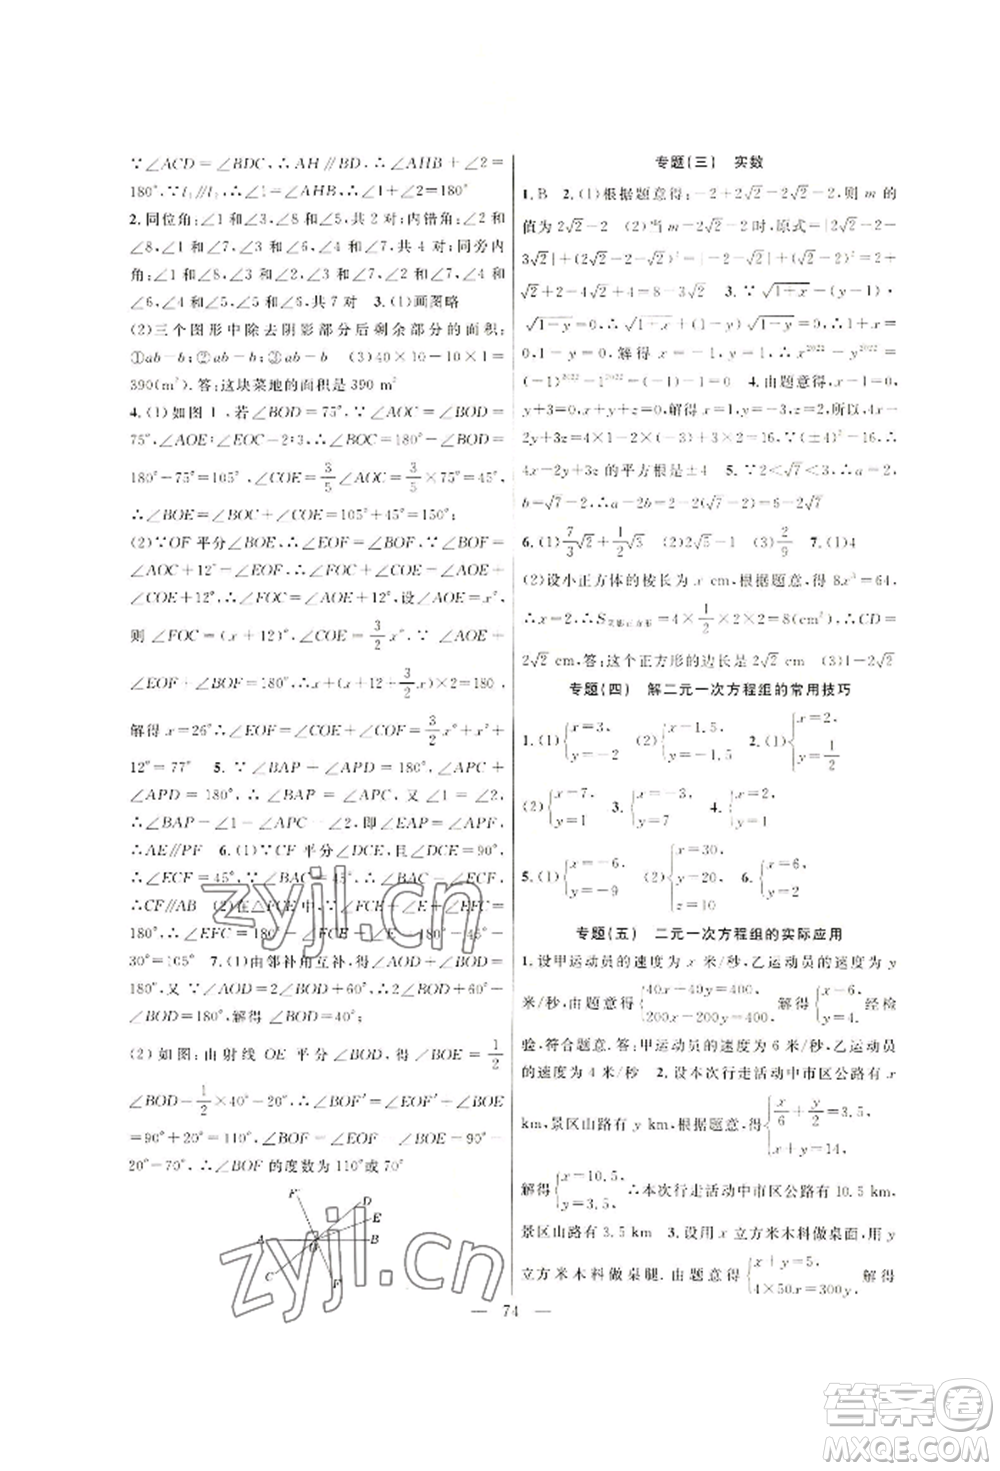 ∵∠ACD=∠BDC,∴AH∥BD,∴∠AHB+∠2=
180°,∵l₁∥l₂,∴∠1=∠AHB,∴∠1+∠2=180°
2.同位角:∠1和∠3,∠5和∠6,共2对;内错角:∠2和
∠8,∠1和∠7,∠3和∠5,∠4和∠6,共4对;同旁内
角:∠1和∠8,∠2和∠7,∠1和∠6,∠3和∠4,∠3
∠5和∠6,共7对 3.(1)画图略
(2)三个图形中除去阴影部分后剩余部分的面积:
①ab-b;②ab-b;③ab-b (3)40×10-10×1=
390(m²).答:这块菜地的面积是390 m²
4.(1)如图1,若∠BOD=75°,∵∠AOC=∠BOD=
75°,∠AOE:∠EOC=2:3,∴∠BOC=180°-∠BOD=
180°-75°=105°,∠COE=3/5∠AOC=3/5×75°=45°,
∴∠BOE=∠BOC+∠COE=105°+45°=150°;
(2)∵OF平分∠BOE,∴∠EOF=∠BOF=
∠AOC+12°=∠EOF,∴∠FOC=
∠AOC+12°,设∠AOE=x°,
则∠FOC=(x+12)°,∠COE=3/2x°,∵∠AOE+
∠EOF+∠BOF=180°,∴x+(x+12+3/2x)×2=180,
解得x=26°∴∠EOF=∠COE+∠FOC=3/2x°+x°+
12°=77° 5.∵∠BAP+∠APD=180°,∠APC+
∠APD=180°,∴∠BAP=∠APC,∵∠1=∠2,
∴∠BAP-∠1=∠APC-∠2,即∠EAP=∠APF,
∴AE∥PF 6.(1)∵CF平分∠DCE,且∠DCE=90°,
∴∠ECF=45°,∵∠BAC=45°,∴∠BAC=∠ECF,
∴CF∥AB (2)在△FCE中,∵∠FCE+∠E+∠EFC=
180°,∴∠EFC=180°-∠FCE-∠E=180°-45°-
30°=105° 7.(1)由邻补角互补,得∠AOD+∠BOD=
180°,又∵∠AOD=2∠BOD+60°,∴2∠BOD+60°+
∠BOD=180°,解得∠BOD=40°;
(2)如图:由射线OE平分∠BOD,得∠BOE=1/2
∠BOD=1/2×40°=20°,∴∠BOF'=∠EOF'+∠BOE
=90°+20°=110°,∠BOF=∠EOF-∠BOE=90°-
20°=70°,∴∠BOF的度数为110°或70°
F'
D
E
A
O
B
C
F
专题(三) 实数
1.B 2.(1)根据题意得:-2+2√2=2√2-2,则m的
值为2√2-2 (2)当m=2√2-2时,原式=|2√2-2-
3√2|+(2√2-2+2)²=|-√2-2|+(2√2)²=2+
√2+8=10+√2 3.∵√(1+x)-(y-1)·
√(1-y)=0,∴√(1+x)+(1-y)√(1-y)=0,∴1+x=
0,1-y=0,解得x=-1,y=1,∴x²⁰²²-y²⁰²²=
(-1)²⁰²²-1²⁰²²=1-1=0 4.由题意得,x-4=0,
y+3=0,z-2=0,解得x=4,y=-3,z=2,所以,4x-
2y+3z=4×4-2×(-3)-3×2=16,∵(±4)²=16,∴
4x-2y+3z的平方根是±4 5.∵2<√7<3,∴a=2,
b=√7-2,∴a-2b=2-2(√7-2)=6-2√7
6.(1)7/3√2+1/2√3 (2)2√5-1 (3)2/9 7.(1)4
(2)设小正方体的棱长为x cm,根据题意,得8x³=64,
∴x=2,∴S阴影正方形=4×1/2×2×2=8(cm²),∴CD=
2√2 cm,答:这个正方形的边长是2√2 cm (3)1-2√2
专题(四) 解二元一次方程组的常用技巧
1.(1){x=3, y=-2 (2){x=1.5, y=-1.5 2.(1){x=2, y=1/2
(2){x=7, y=1 3.{x=-3, y=7 4.{x=4, y=8
5.(1){x=6, y=-9 (2){x=30, y=20, z=10 6.{x=6, y=9
专题(五) 二元一次方程组的实际应用
1.设甲运动员的速度为x米/秒,乙运动员的速度为y
米/秒,由题意得{40x+40y=400, 200x-200y=400, 解得{x=6, y=4, 经检
验,符合题意.答:甲运动员的速度为6米/秒,乙运动员
的速度为4米/秒 2.设本次行走活动中市区公路有x
km,景区山路有y km,根据题意,得{x/6+y/2=3.5, x+y=14,
解得{x=10.5, y=3.5, ∴本次行走活动中市区公路有10.5 km,
景区山路有3.5 km 3.设用x立方米木料做桌面,用y
立方米木料做桌腿.由题意得{x+y=5, 4×50x=300y, 解得
— 74 —
zyjl.cn
zyjl.cn
答案圈
MXQE.COM